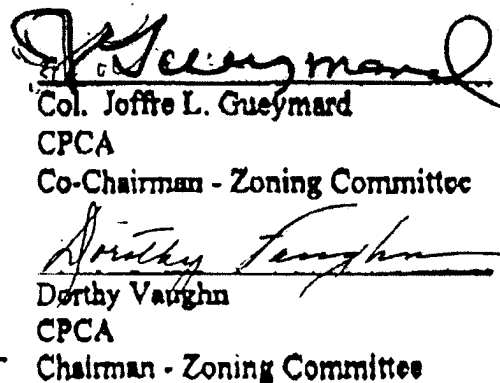 J L Gueymard
Col. Joffre L. Gueymard
CPCA
Co-Chairman - Zoning Committee
Dorothy Vaughn
Dorthy Vaughn
CPCA
Chairman - Zoning Committee